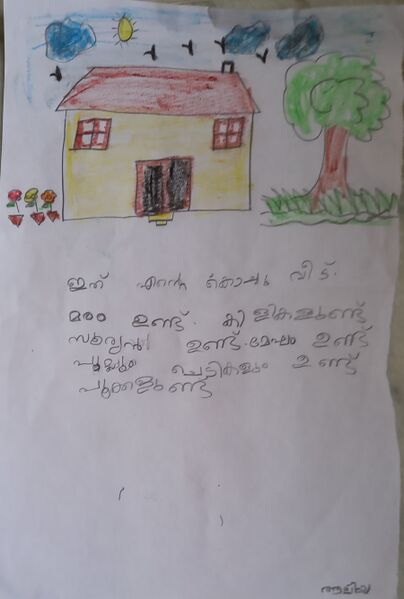 ഇത് എന്റെ കൊച്ചു വീട്.
മരം ഉണ്ട്. കിളികളുണ്ട്
സൂര്യനും ഉണ്ട്. മേഘം ഉണ്ട്
പുല്ലും ചെടികളും ഉണ്ട്
പൂക്കളുണ്ട്
ആലിയ